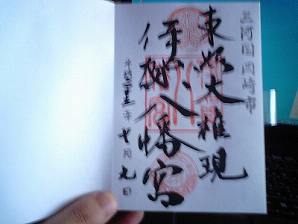 三河国岡崎市
東照大権現
伊賀八幡宮
平成 年 月九日